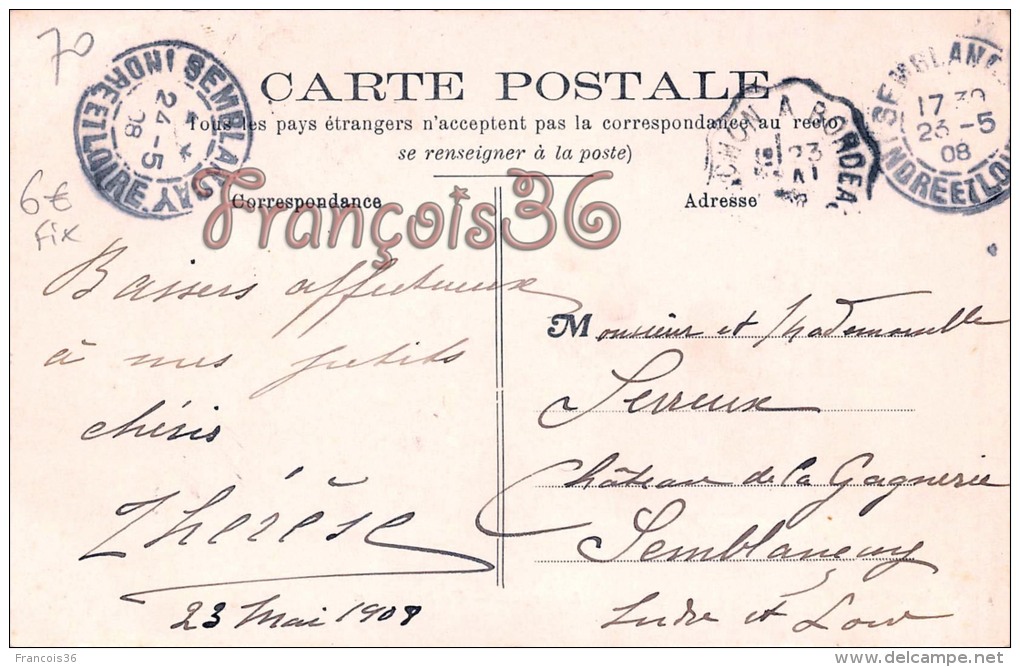 70
SEMBLANÇAY
24-5
08
INDRE ET LOIRE
CARTE POSTALE
Tous les pays étrangers n'acceptent pas la correspondance au recto
se renseigner à la poste)
A BORDEA
23
SEMBLANÇ
17 30
23 -5
08
INDRE ET LOI
6€
fix
Correspondance
François36
Adresse
Baisers affectueux
à mes petits
chéris
Thérèse
23 Mai 1908
Monsieur et Mademoiselle
Serreux
Château de la Gagnerie
Semblançay
Indre et Loire
François36
www.delcampe.net